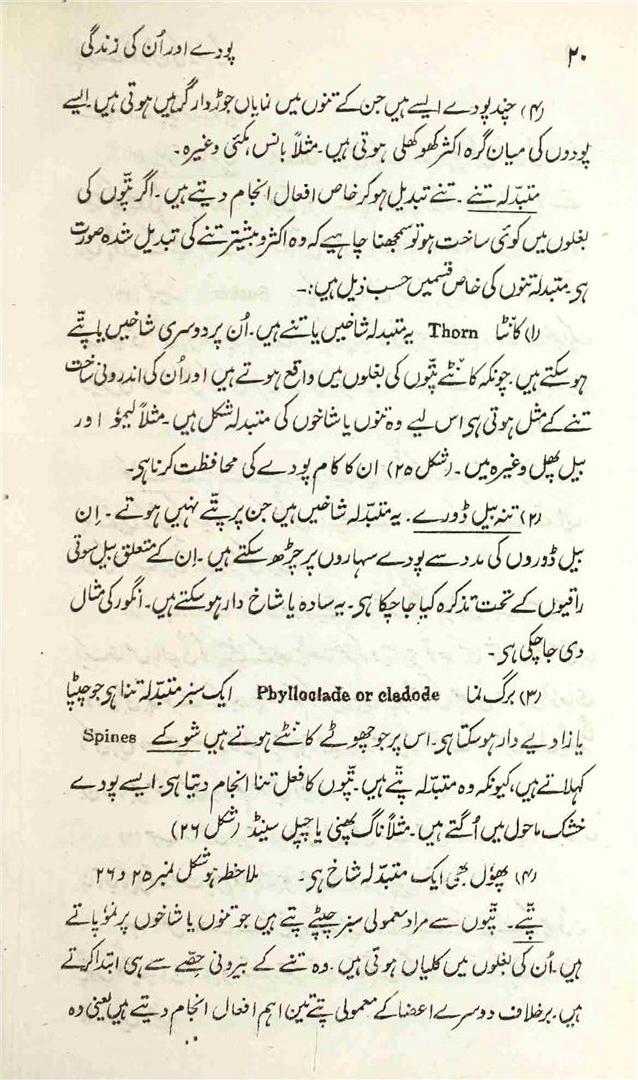 ۲۰ پودے اور اُن کی زندگی
(۴) چند پودے ایسے ہیں جن کے تنوں میں نمایاں جوڑ دار گرہیں ہوتی ہیں۔ ایسے
پودوں کی میان گرہ اکثر کھوکھلی ہوتی ہیں۔ مثلاً بانس، مکئی وغیرہ۔
متبدّلہ تنے۔ تنے تبدیل ہو کر خاص افعال انجام دیتے ہیں۔ اگر پتّوں کی
بغلوں میں کوئی ساخت ہو تو سمجھنا چاہیے کہ وہ اکثر و بیشتر تنے کی تبدیل شدہ صورت
ہی۔ متبدلہ تنوں کی خاص قسمیں حسب ذیل ہیں:۔
(۱) کانٹا Thorn یہ متبدلہ شاخیں یا تنے ہیں۔ اُن پر دوسری شاخیں یا پتّے
ہو سکتے ہیں۔ چونکہ کانٹے پتّوں کی بغلوں میں واقع ہوتے ہیں اور اُن کی اندرونی ساخت
تنے کے مثل ہوتی ہی اس لیے وہ تنوں یا شاخوں کی متبدلہ شکل ہیں۔ مثلاً لیمؤ اور
بیل پھل وغیرہ میں۔ (شکل ۲۵) ان کا کام پودے کی محافظت کرنا ہی۔
(۲) تنہ بیل ڈورے۔ یہ متبدّلہ شاخیں ہیں جن پر پتّے نہیں ہوتے۔ اِن
بیل ڈوروں کی مدد سے پودے سہاروں پر چڑھ سکتے ہیں۔ اِن کے متعلق بیل سوتی
راقیوں کے تحت تذکرہ کیا جا چکا ہی۔ یہ سادہ یا شاخ دار ہو سکتے ہیں۔ انگور کی مثال
دی جا چکی ہی۔
(۳) برگ نما Phylloclade or cladode ایک سبز متبدّلہ تنا ہی جو چپٹا
یا زاویے دار ہو سکتا ہی۔ اس پر جو چھوٹے کانٹے ہوتے ہیں شوکے Spines
کہلاتے ہیں، کیونکہ وہ متبدّلہ پتّے ہیں۔ پتّوں کا فعل تنا انجام دیتا ہی۔ ایسے پودے
خشک ماحول میں اُگتے ہیں۔ مثلاً ناگ پھنی یا چپل سینڈ (شکل ۲۶)
(۴) پھوٗل بھی ایک متبدّلہ شاخ ہی۔ ملاحظہ ہو شکل نمبر ۲۵ و ۲۶
پتّے۔ پتّوں سے مراد معمولی سبز چپٹے پتے ہیں جو تنوں یا شاخوں پر نمؤ پاتے
ہیں۔ اُن کی بغلوں میں کلیاں ہوتی ہیں۔ وہ تنے کے بیرونی حصّے سے ہی ابتدا کرتے
ہیں۔ برخلاف دوسرے اعضا کے معمولی پتّے تین اہم افعال انجام دیتے ہیں یعنی وہ